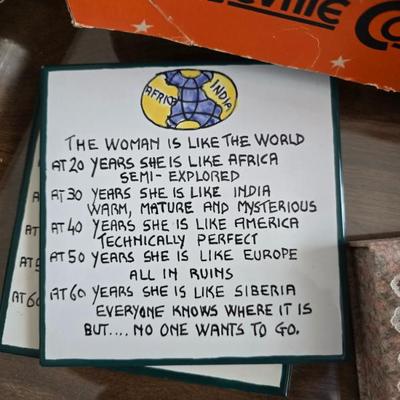 AFRICA
INDIA
THE WOMAN IS LIKE THE WORLD
AT 20 YEARS SHE IS LIKE AFRICA
SEMI-EXPLORED
AT 30 YEARS SHE IS LIKE INDIA
WARM, MATURE AND MYSTERIOUS
AT 40 YEARS SHE IS LIKE AMERICA
TECHNICALLY PERFECT
AT 50 YEARS SHE IS LIKE EUROPE
ALL IN RUINS
AT 60 YEARS SHE IS LIKE SIBERIA
EVERYONE KNOWS WHERE IT IS
BUT.... NO ONE WANTS TO GO.